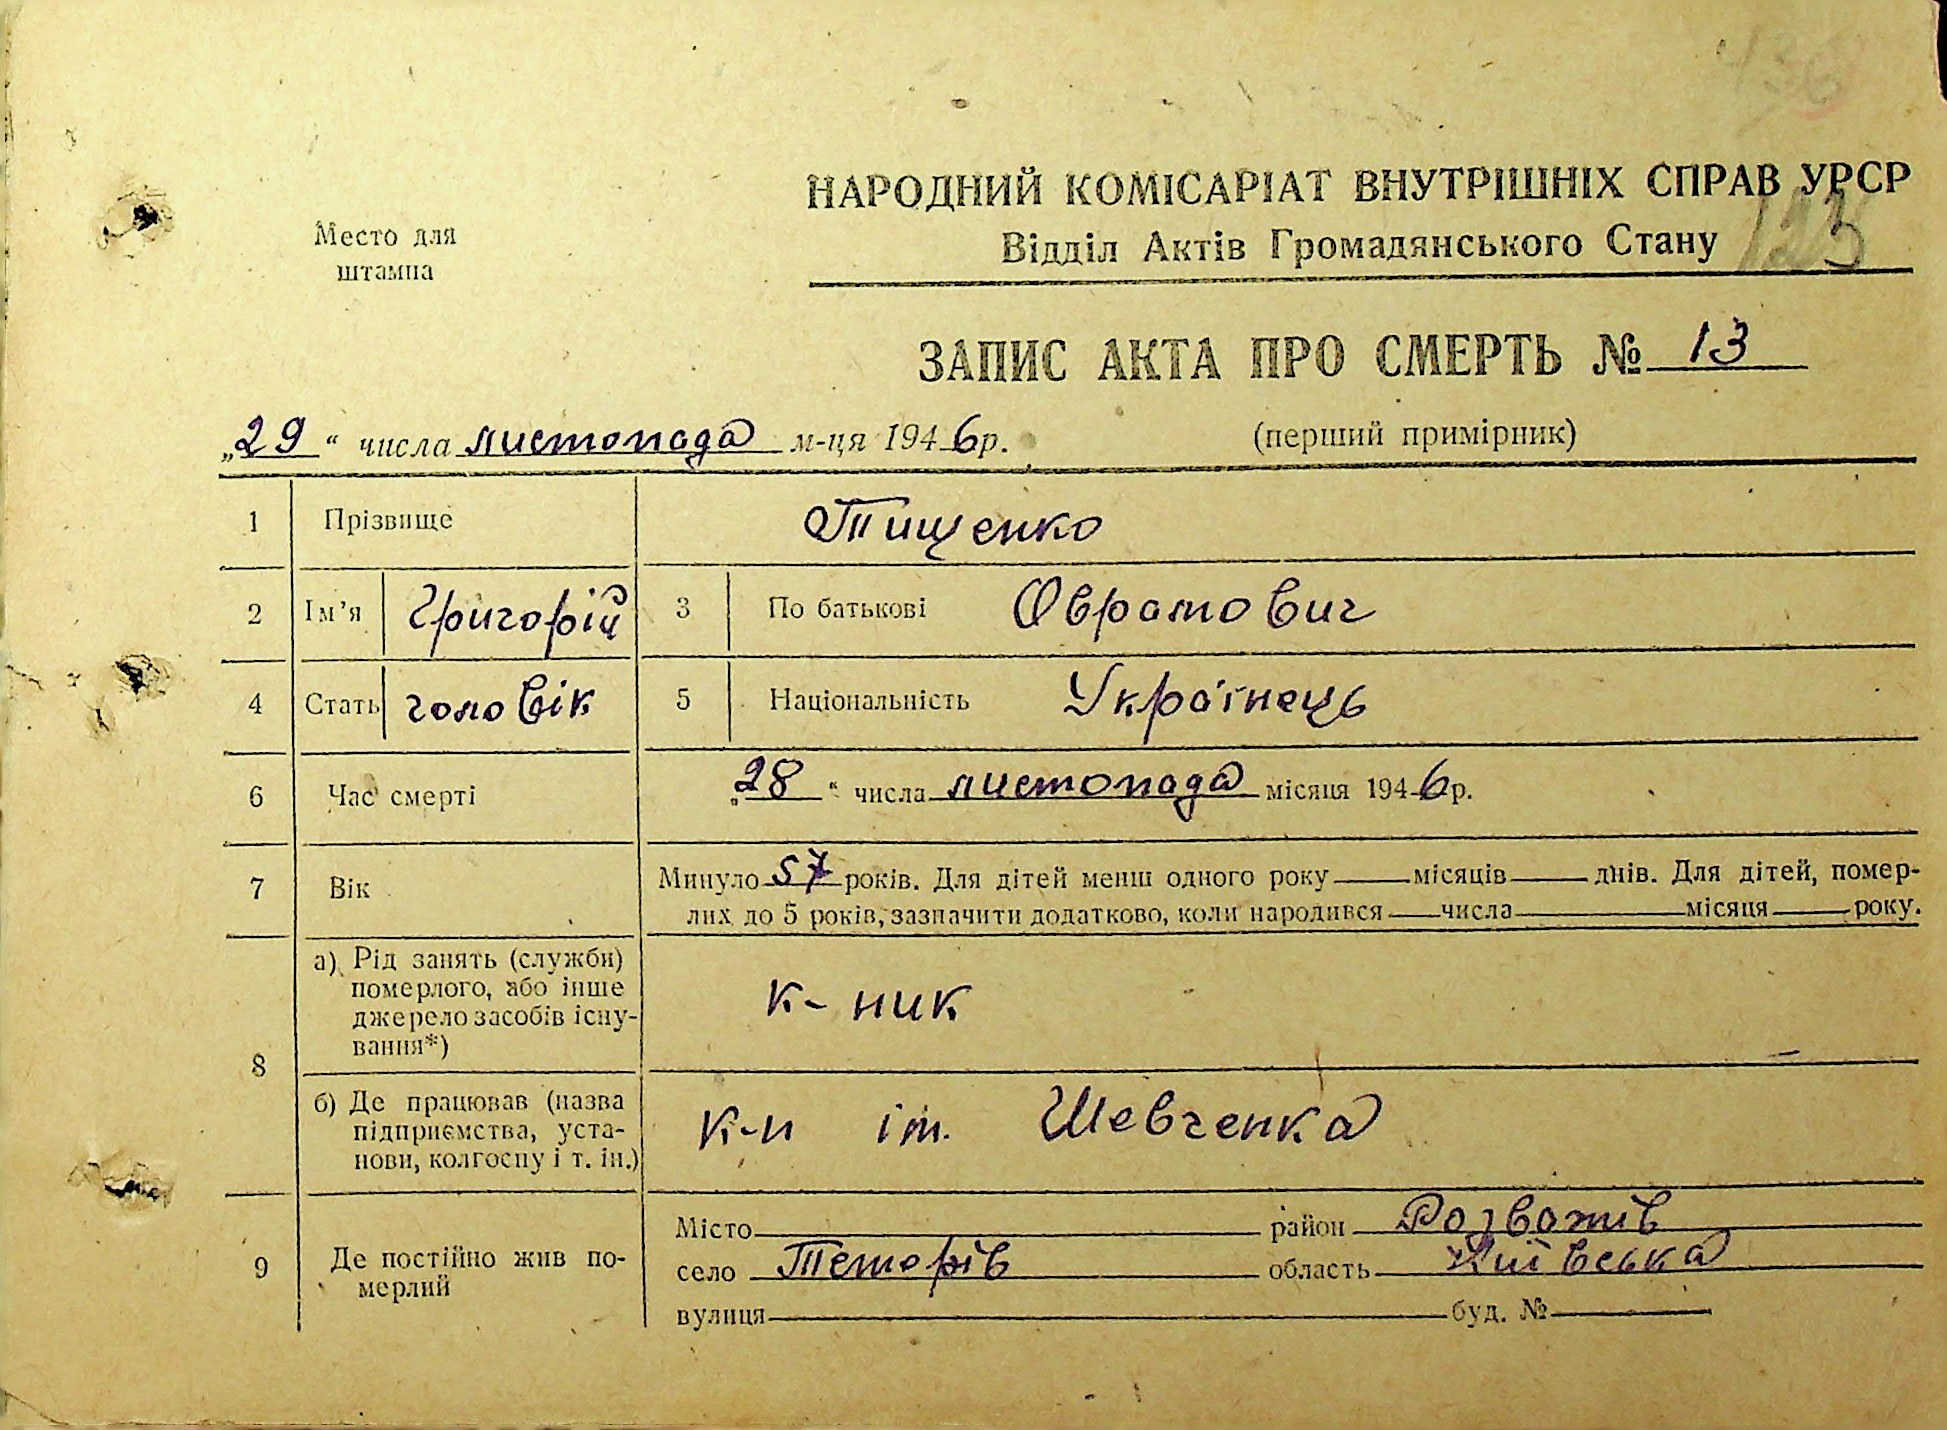 НАРОДНИЙ КОМІСАРІАТ ВНУТРІШНІХ СПРАВ УРСР
Відділ Актів Громадянського Стану
123
Место для
штампа
ЗАПИС АКТА ПРО СМЕРТЬ № 13
„29“ числа листопада м-ця 1946р.
(перший примірник)
1 Прізвище Тищенко
2 Ім’я Григорій 3 По батькові Оврамович
4 Стать чоловік 5 Національність Українець
6 Час смерті „28“ числа листопада місяця 1946р.
7 Вік Минуло 57 років. Для дітей менш одного року місяців днів. Для дітей, помер-
лих до 5 років, зазначити додатково, коли народився числа місяця року.
8 а) Рід занять (служби)
померлого, або інше
джерело засобів існу-
вання*)
к-ник
б) Де працював (назва
підприємства, уста-
нови, колгоспу і т. ін.)
к-п ім. Шевченка
9 Де постійно жив по-
мерлий
Місто район Розважів
село Тетерів область Київська
вулиця буд. №